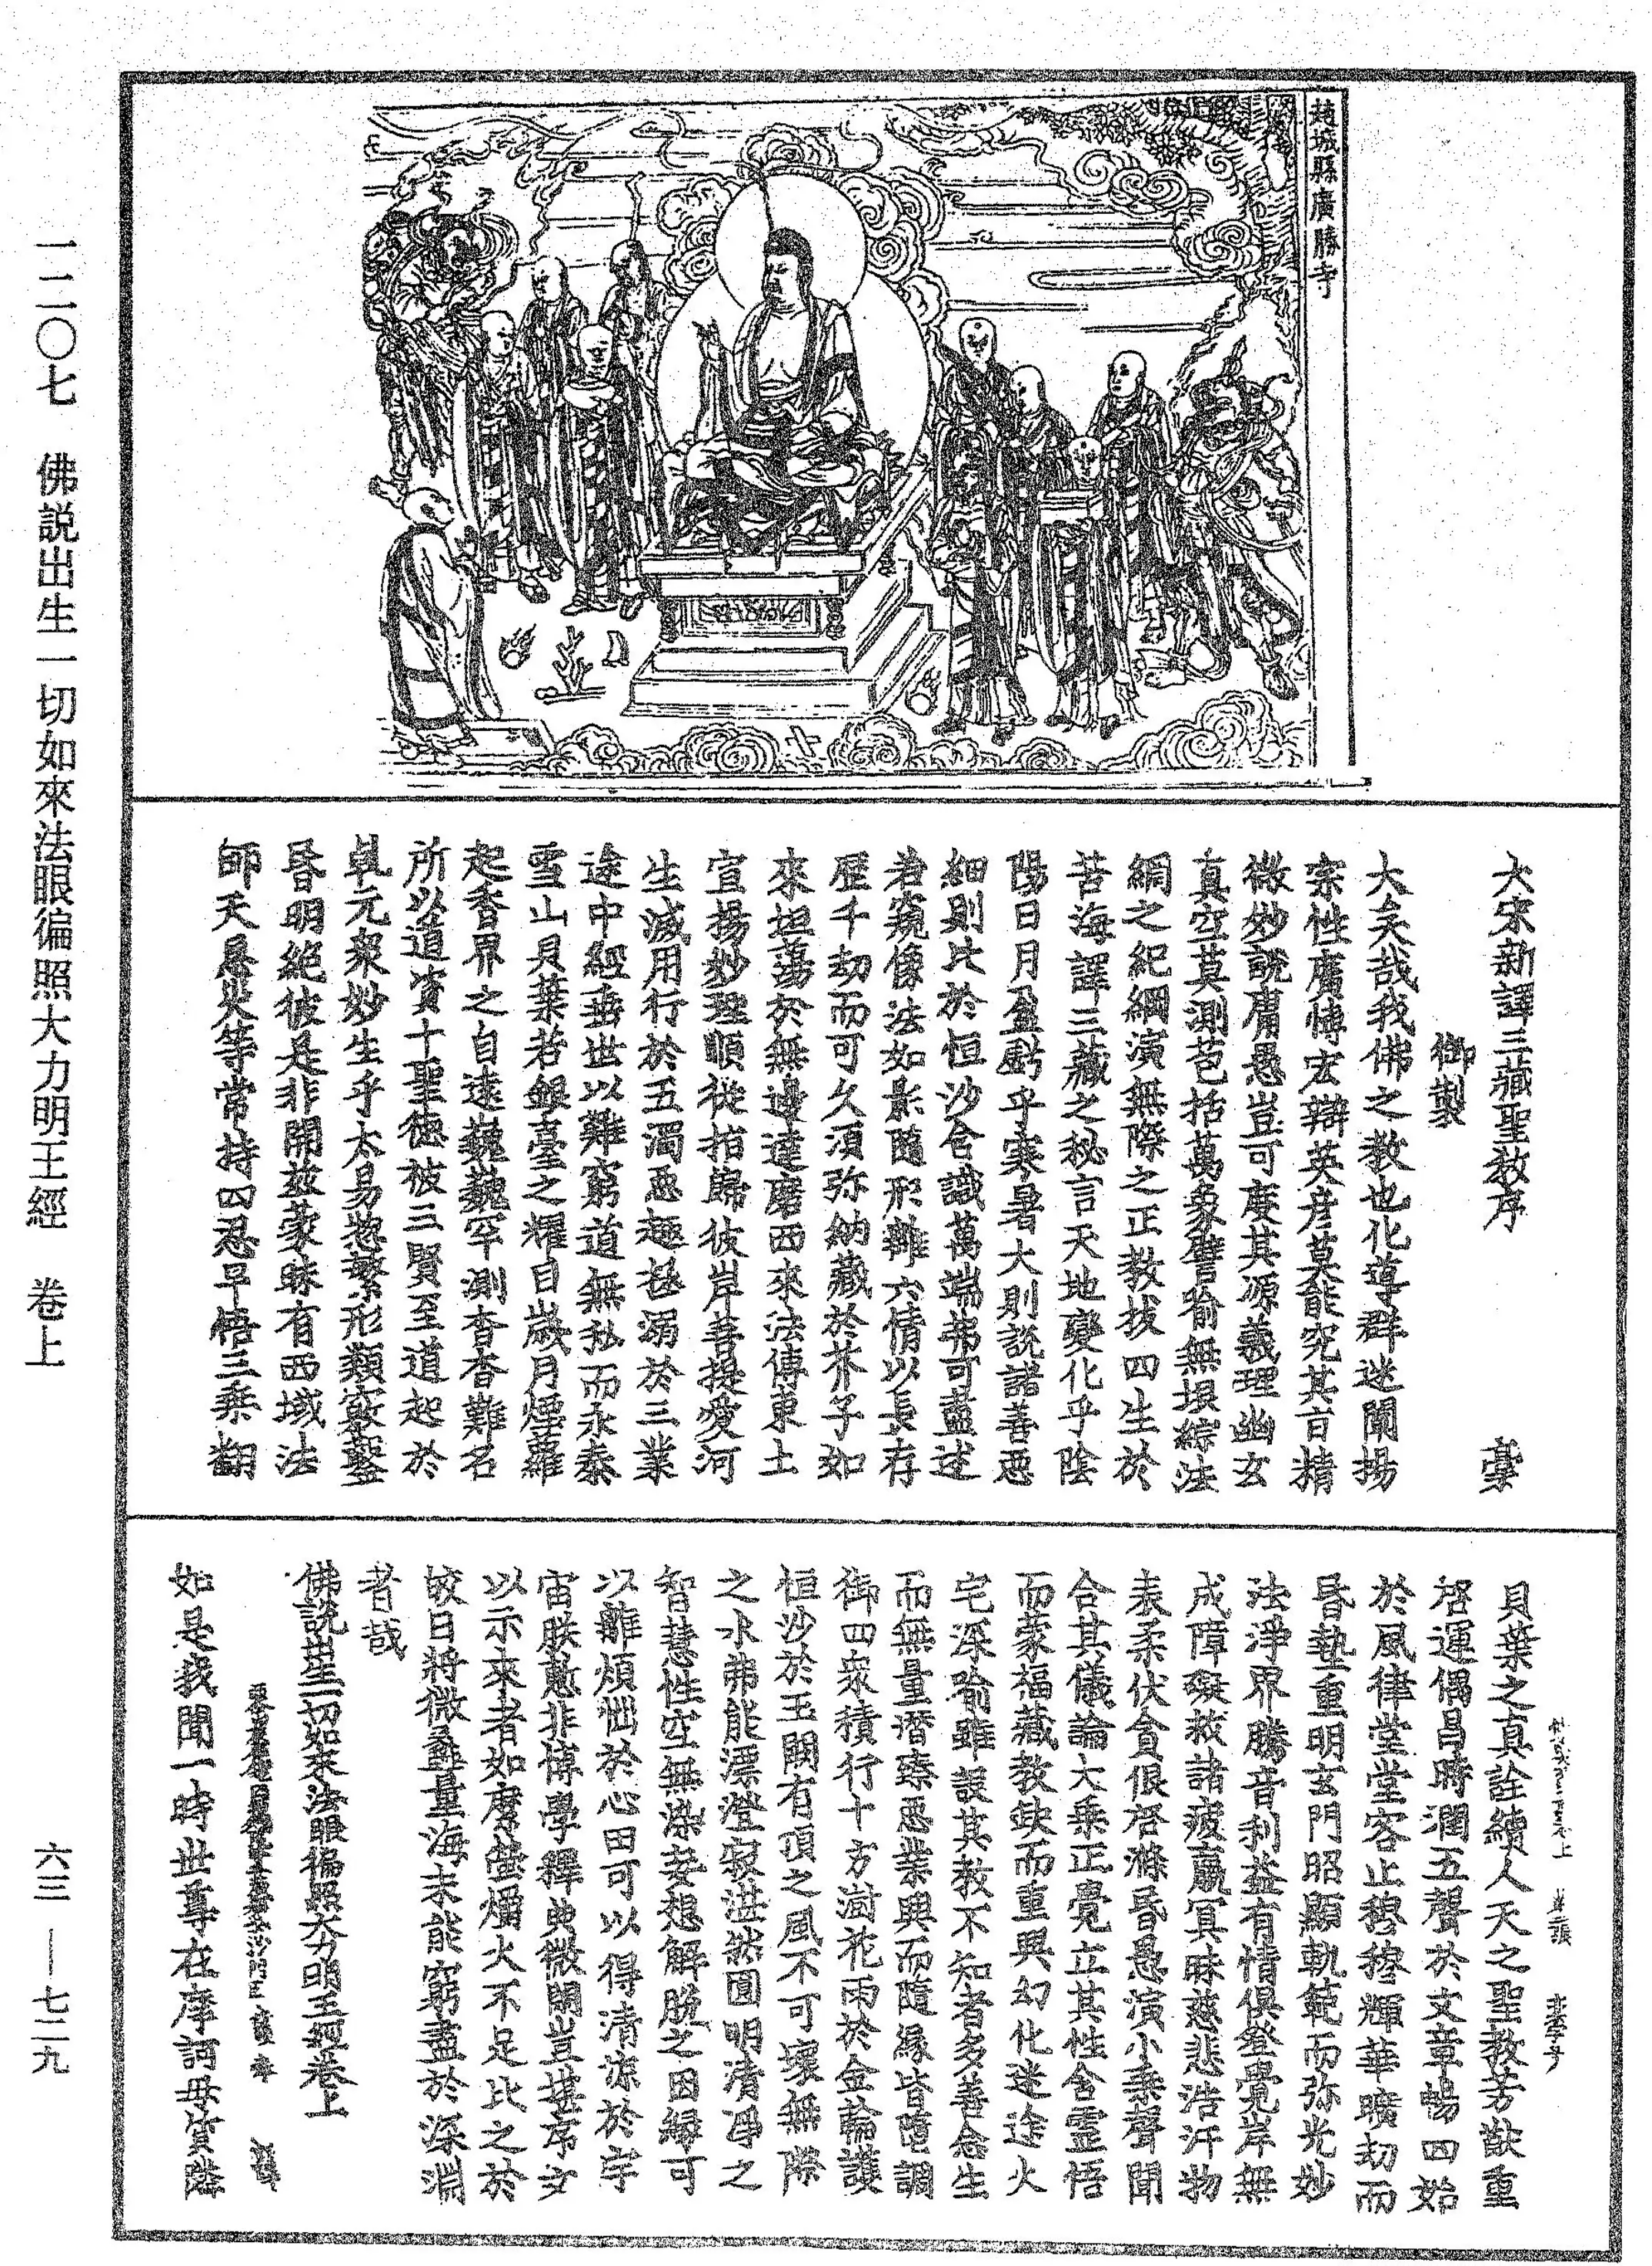 趙城縣廣勝寺
大宋新譯三藏聖教序
御製
大矣哉我佛之教也化導群迷闡揚
宗性廣博宏辯英彥莫能究其旨精
微妙說庸愚豈可度其源義理幽玄
真空莫測苞括萬象譬喻無垠綜法
綱之紀綱演無際之正教拔四生於
苦海譯三藏之秘言天地變化乎陰
陽日月盈虧乎寒暑大則說諸善惡
細則比於恒沙含識萬端弗可盡述
若窺像法如影隨形離六情以長存
歷千劫而可久須弥納藏於芥子如
來坦蕩於無邊達磨西來法傳東土
宣揚妙理順從指歸彼岸菩提愛河
生滅用行於五濁惡趣拯溺於三業
途中經垂世以難窮道無私而永泰
雪山貝葉若銀臺之耀目歲月煙蘿
起香界之自遠巍巍罕測杳杳難名
所以道資十聖德被三賢至道起於
乹元衆妙生乎太易惣繁形類竅鑿
昏明絕彼是非開兹蒙昧有西域法
師天息災等常持四忍早悟三乘翻
貝葉之真詮續人天之聖教芳猷重
啓運偶昌時潤五聲於文章暢四始
於風律堂堂容止穆穆輝華曠劫而
昏蟄重明玄門昭顯軌範而弥光妙
法淨界騰音利益有情俱登覺岸無
成障礙救諸疲羸冥昧慈悲浩汗物
表柔伏貪佷啓滌昏愚演小乘聲聞
合其儀論大乘正覺立其性含靈悟
而蒙福藏教缺而重興幻化迷途火
宅深喻雖設其教不知者多善念生
而無量潛臻惡業興而隨緣皆墮調
御四衆積行十方澍花雨於金輪護
恒沙於玉闕有頂之風不可壞無際
之水弗能漂澄寂湛然圓明清淨之
智慧性空無染妄想解脫之因緣可
以離煩惱於心田可以得清涼於宇
宙朕慙非博學釋典微閑豈堪序文
以示來者如廖螢爝火不足比之於
皎日將微蠡量海未能窮盡於深淵
者哉
佛說出生一切如來法眼徧照大力明王經卷上
如是我聞一時世尊在摩訶毋質隣
一二〇七 佛説出生一切如來法眼徧照大力明王經 卷上
六三 — 七二九